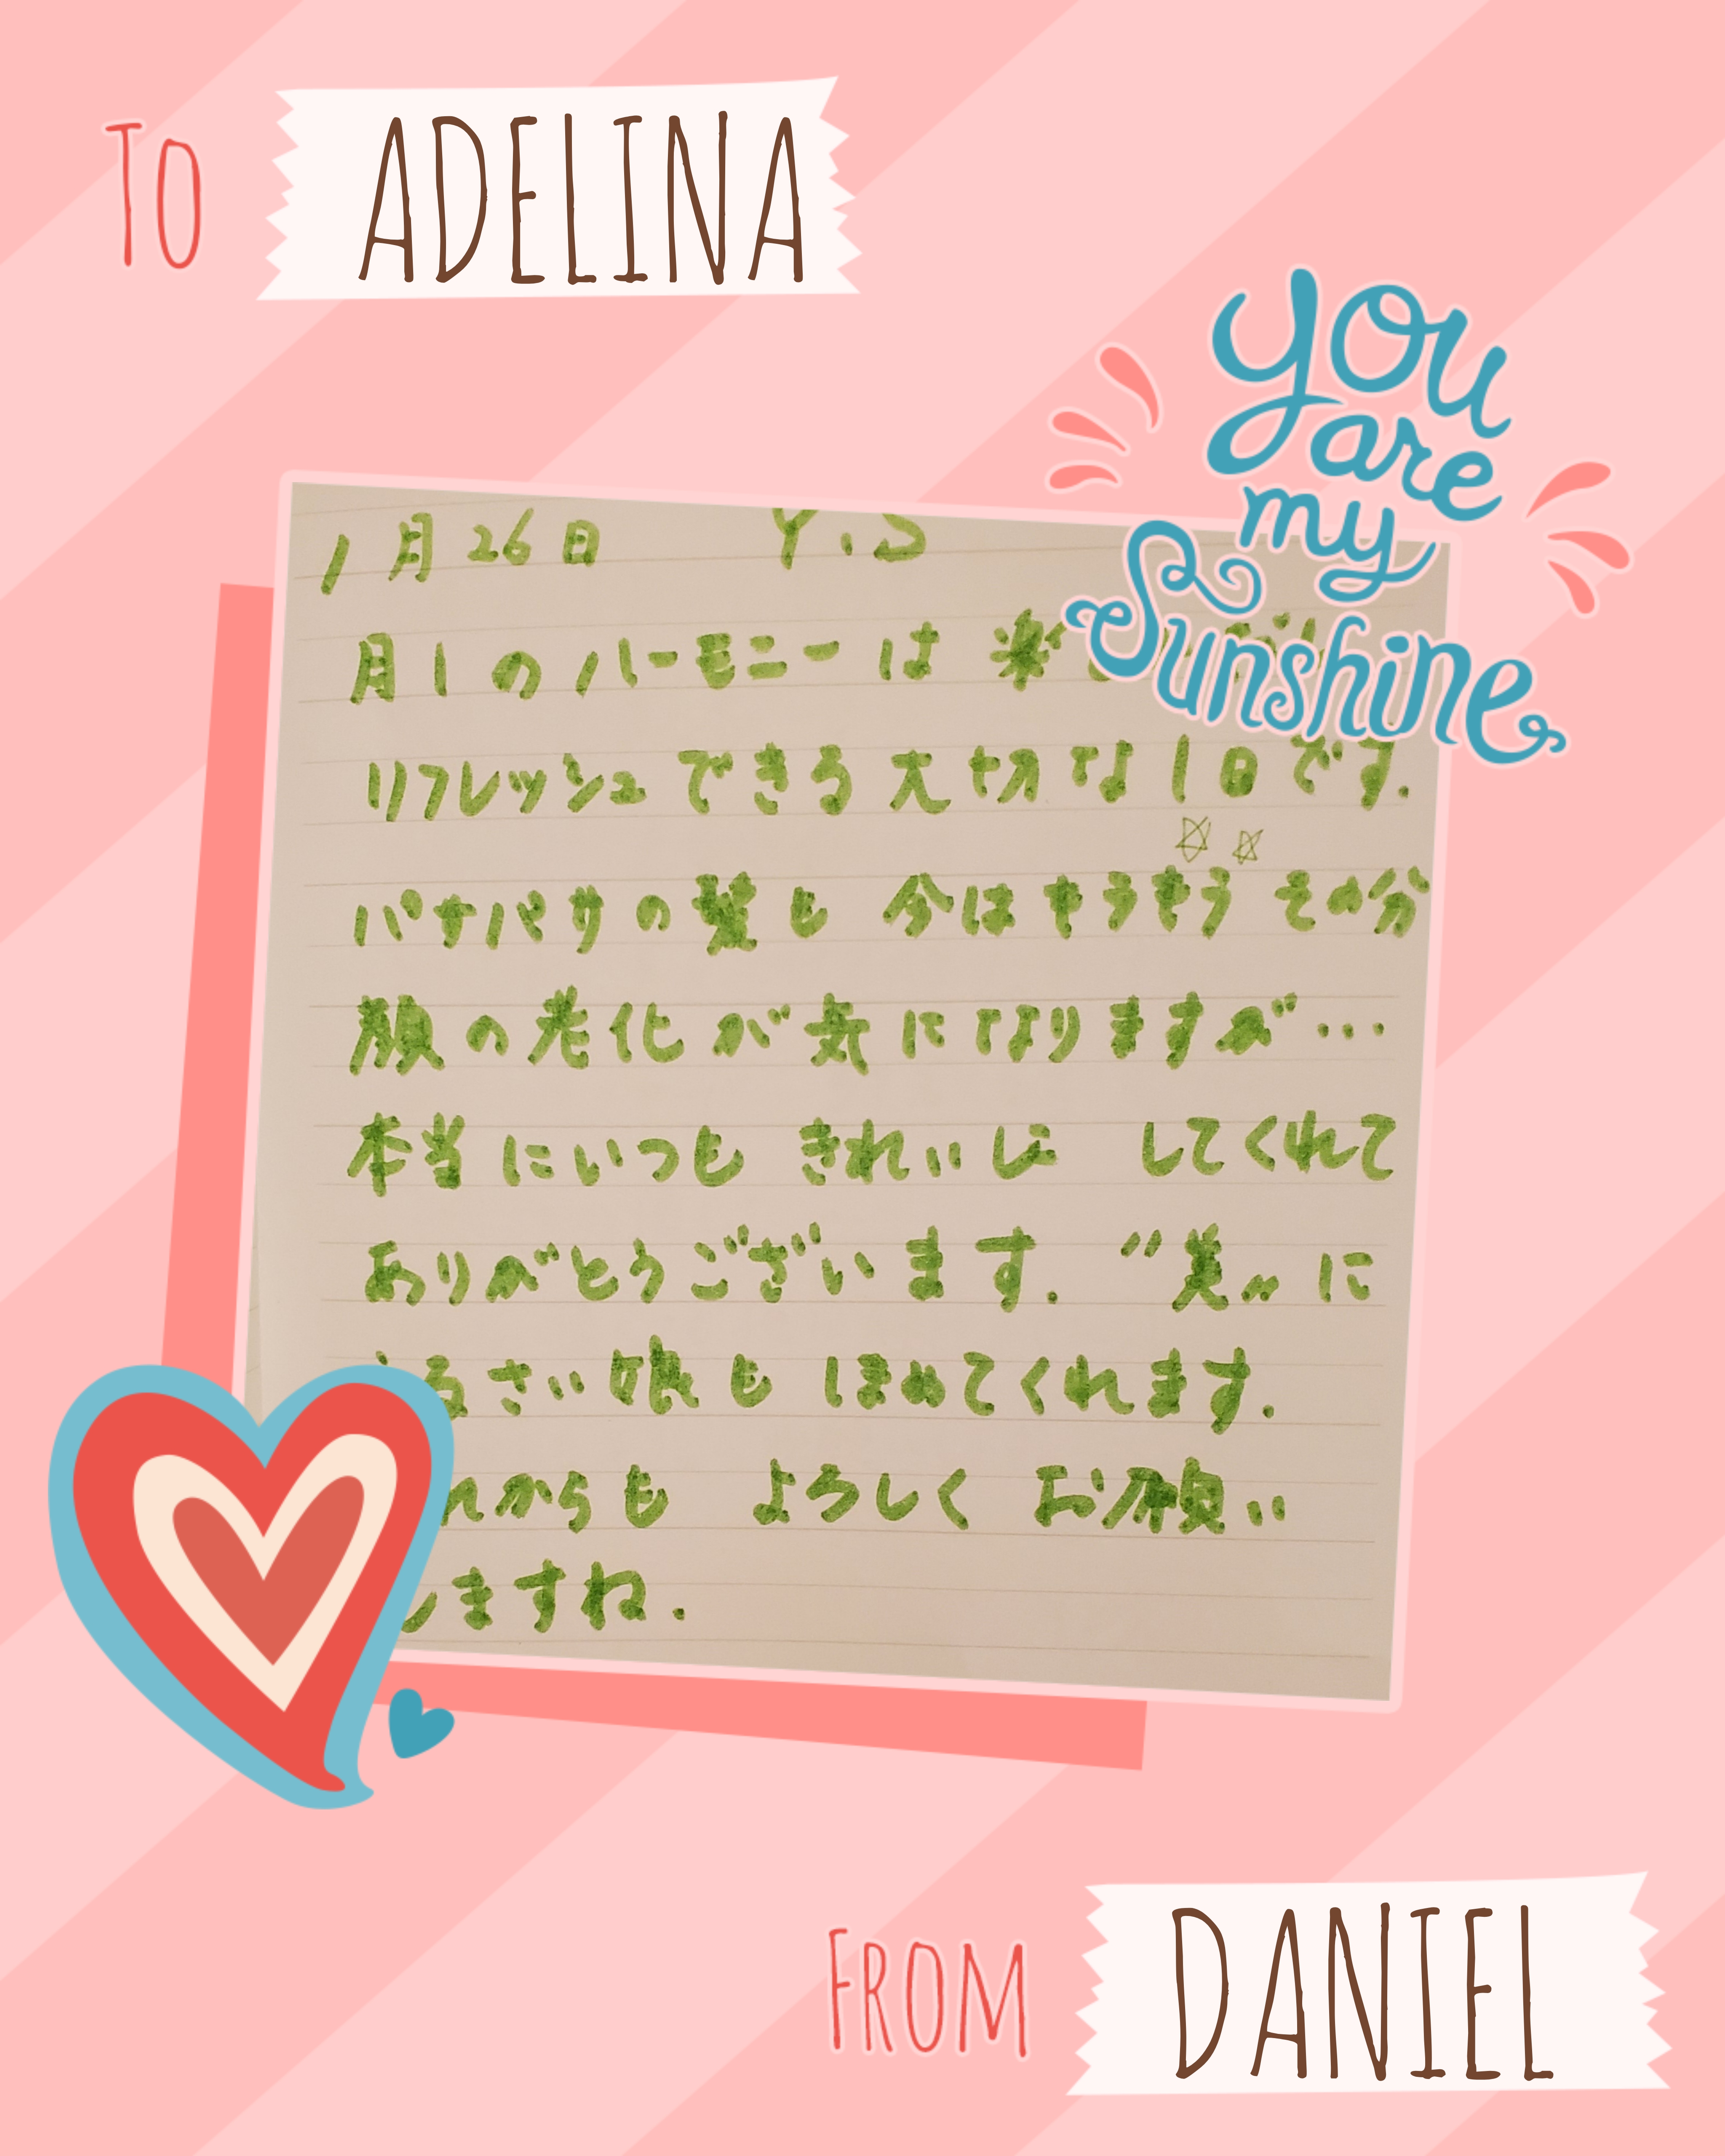 TO ADELINA
you
are
my
Sunshine
1月26日 Y.S
月1のハーモニーは楽
リフレッシュできる大切な1日です.
☆☆
パサパサの髪も 今はもうもう その分
顔の老化が気になりますが…
本当にいつも きれいに してくれて
ありがとうございます. "美" に
るさい娘も ほめてくれます.
れからも よろしく お願い
しますね.
FROM DANIEL